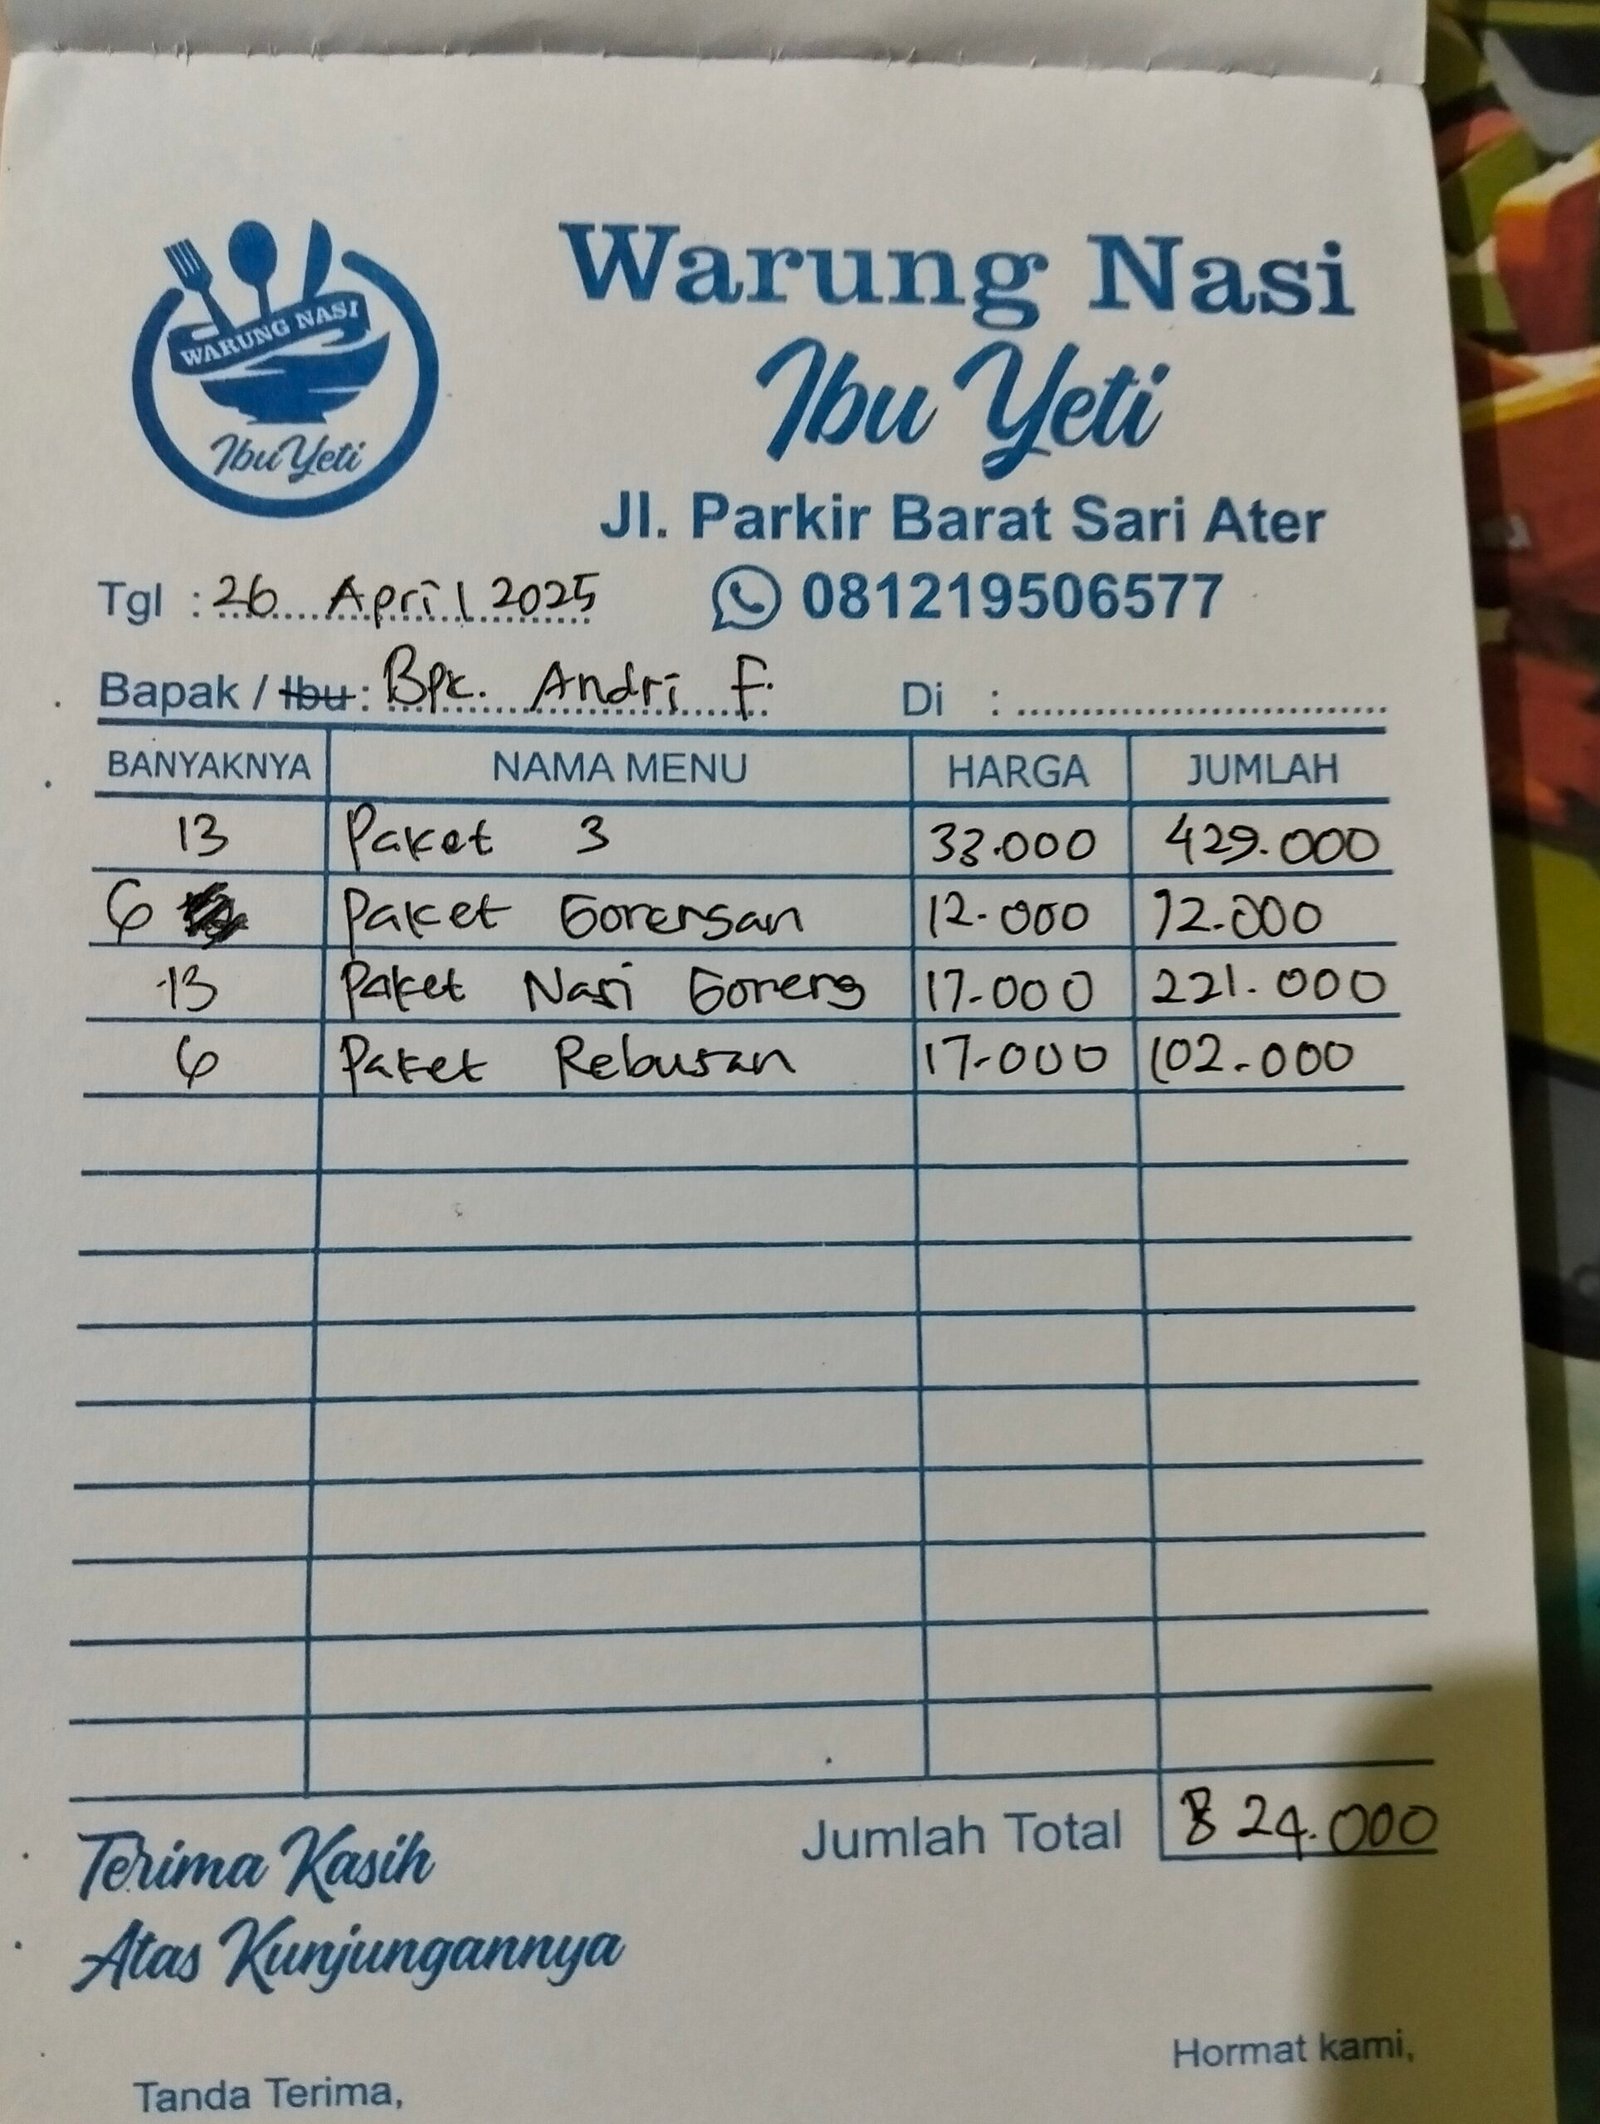 WARUNG NASI
Ibu Yeti
Warung Nasi
Ibu Yeti
Jl. Parkir Barat Sari Ater
Tgl : 26 April 2025 081219506577
Bapak / Ibu : Bpk. Andri F. Di :
BANYAKNYA NAMA MENU HARGA JUMLAH
13 Paket 3 33.000 429.000
6 Paket Gorengan 12.000 72.000
13 Paket Nasi Goreng 17.000 221.000
6 Paket Rebusan 17.000 102.000
Jumlah Total 824.000
Terima Kasih
Atas Kunjungannya
Hormat kami,
Tanda Terima,